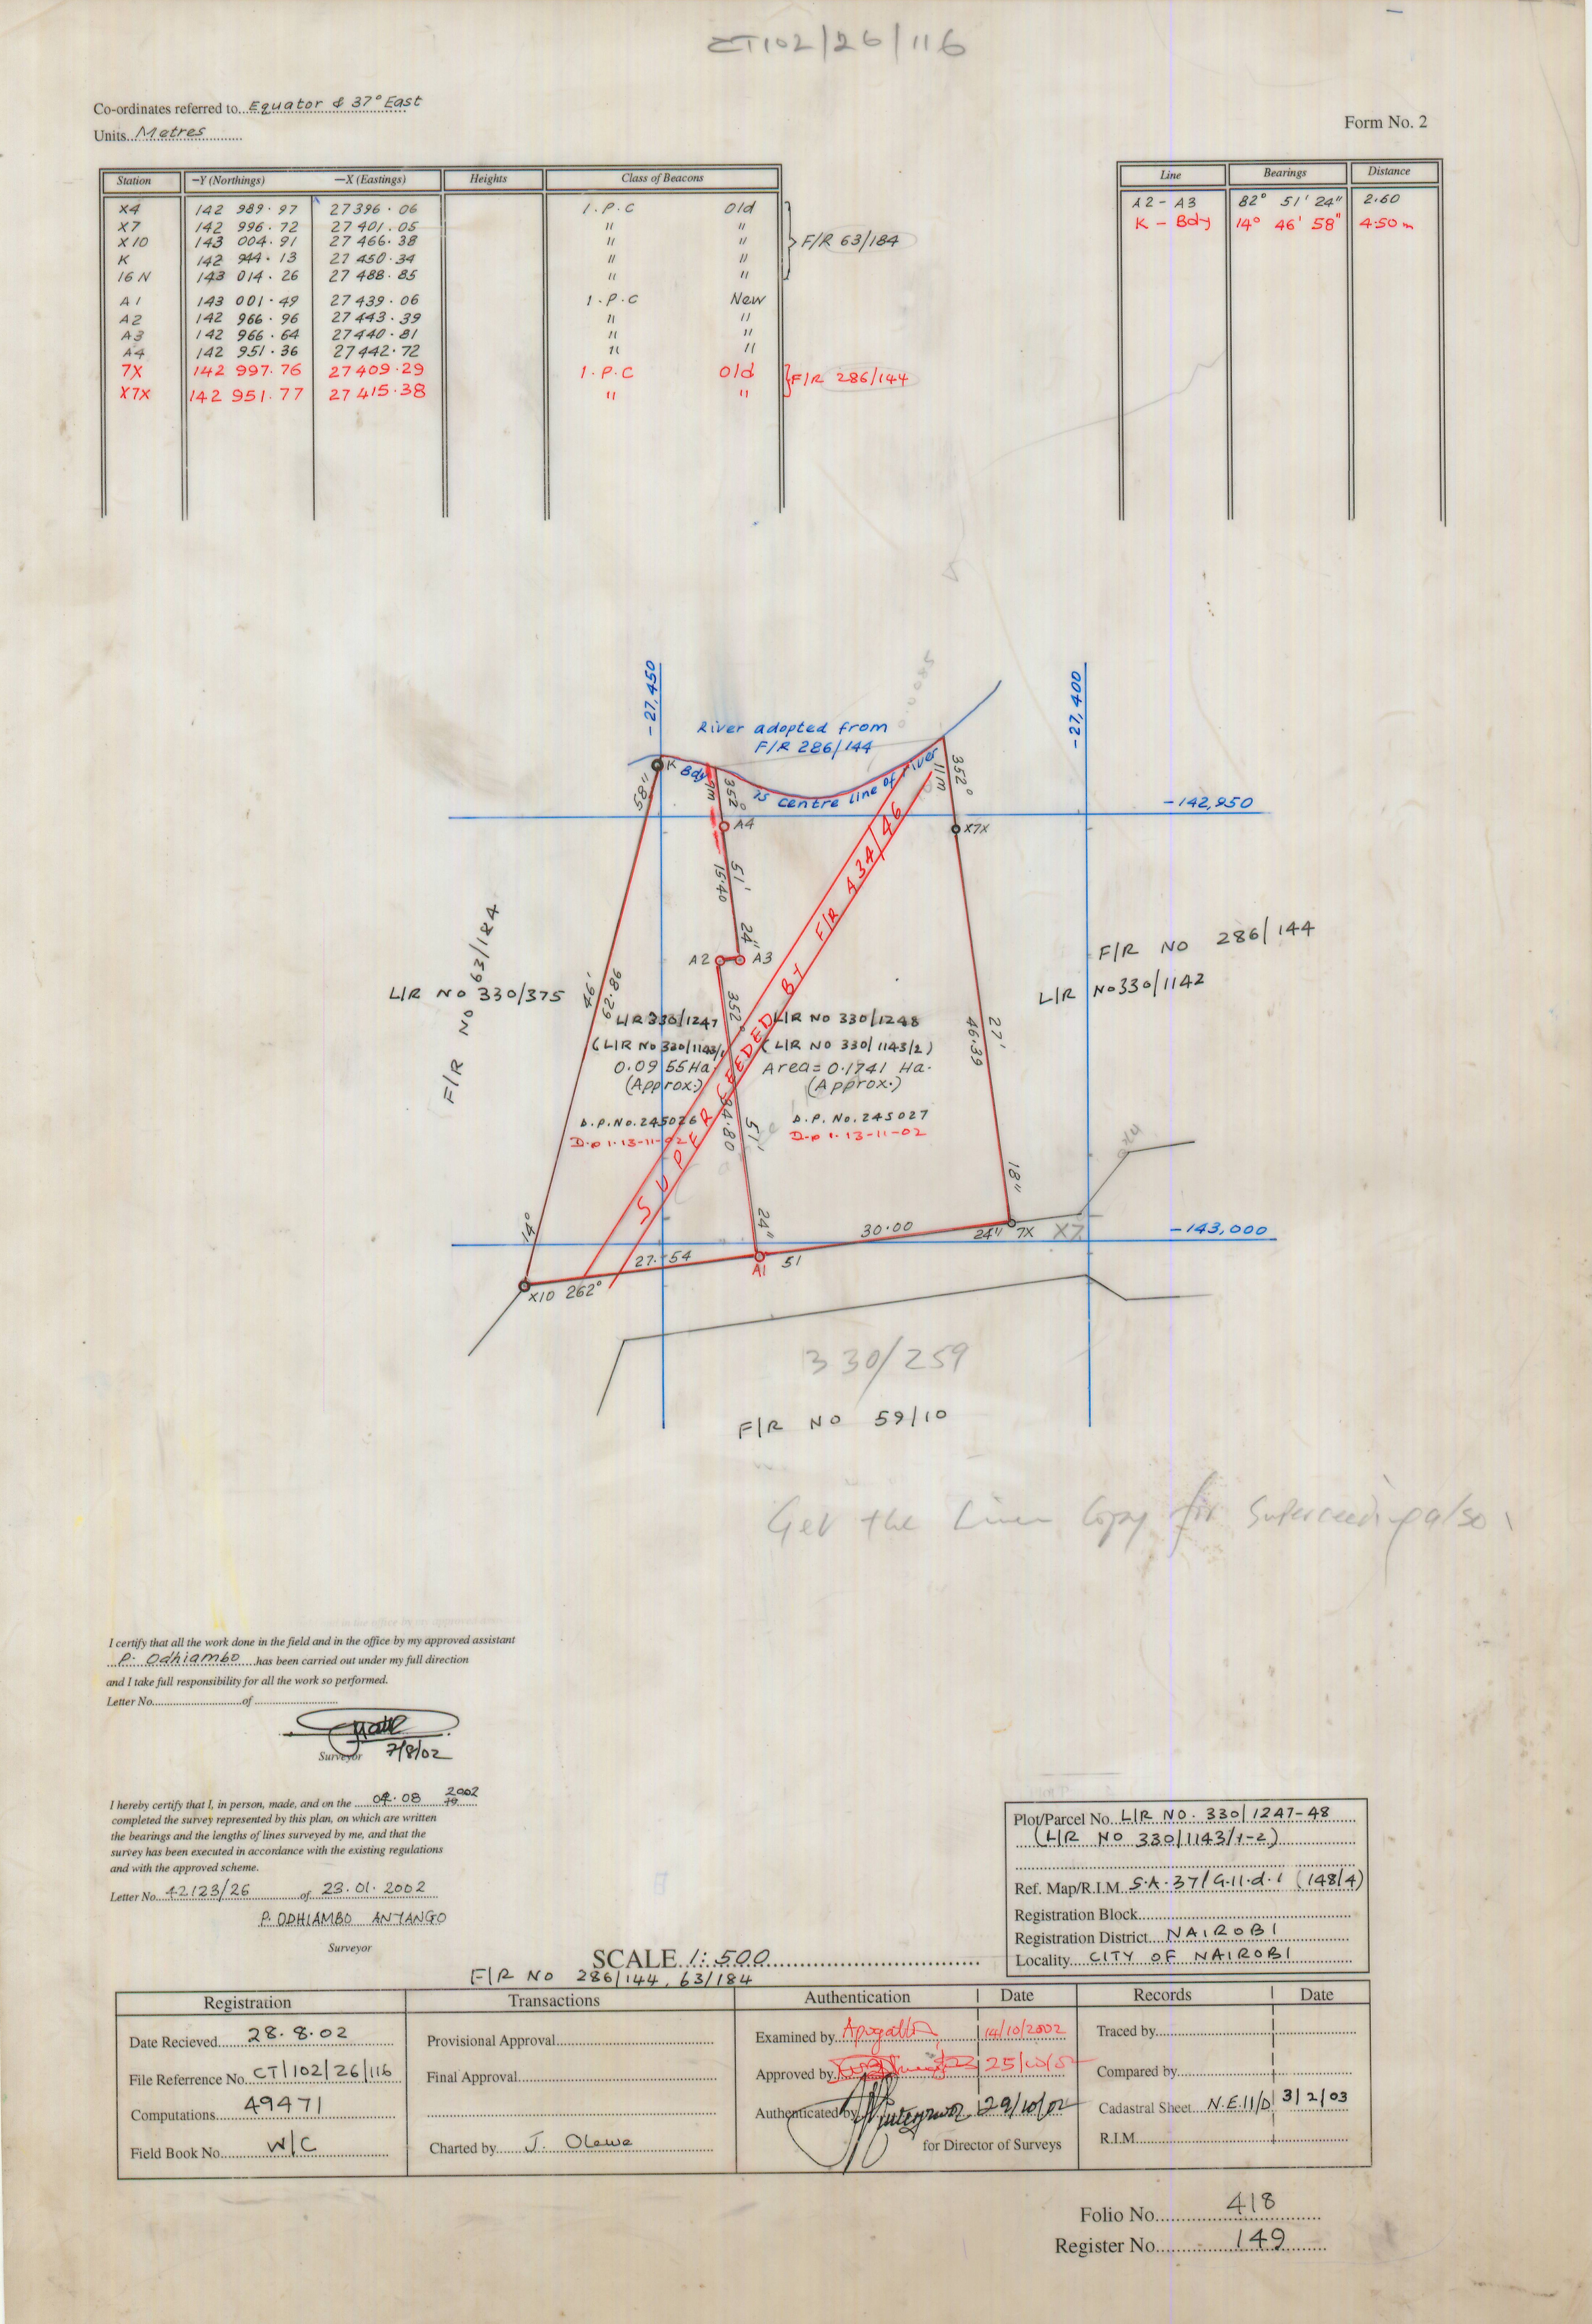 CT102/26/116
Co-ordinates referred to...Equator & 37° East
Units...Metres
Form No. 2
Station −Y (Northings) −X (Eastings) Heights Class of Beacons
X4 142 989.97 27396.06 I.P.C Old
X7 142 996.72 27 401.05 " "
X10 143 004.91 27 466.38 " "
K 142 944.13 27 450.34 " "
16 N 143 014.26 27 488.85 " "
F/R 63/184
A1 143 001.49 27 439.06 I.P.C New
A2 142 966.96 27443.39 " "
A3 142 966.64 27440.81 " "
A4 142 951.36 27442.72 " "
7X 142 997.76 27409.29 I.P.C Old
X7X 142 951.77 27 415.38 " "
F/R 286/144
Line Bearings Distance
A2 - A3 82° 51' 24" 2.60
K - Bdy 14° 46' 58" 4.50 m
-27,450
-27,400
River adopted from
F/R 286/144
K Bdy is centre line of river
58"
9m
352°
11m
352°
-142,950
A4
X7X
51'
15.40
24"
A2 A3
F/R No 63/184
L/R No 330/375
46'
62.86
F/R NO 286/144
L/R No 330/1142
352°
L/R 330/1247
(L/R No 330/1143/1
0.0955 Ha
(Approx.)
D.P. No. 245026
D.p 1. 13-11-02
L/R NO 330/1248
(L/R NO 330/1143/2)
Area = 0.1741 Ha.
(Approx.)
D.P. No. 245027
D.p 1. 13-11-02
SUPERCEEDED BY F/R 434/46
34.80
51'
24"
27'
46.39
18"
14°
30.00
24" 7X X7
-143,000
27.54
A1 51
X10 262°
330/259
F/R NO 59/10
Get the Linen Copy for Superceeding also
I certify that all the work done in the field and in the office by my approved assistant
P. Odhiambo has been carried out under my full direction
and I take full responsibility for all the work so performed.
Letter No..........of..........
Surveyor 7/8/02
I hereby certify that I, in person, made, and on the 04.08 2002 19
completed the survey represented by this plan, on which are written
the bearings and the lengths of lines surveyed by me, and that the
survey has been executed in accordance with the existing regulations
and with the approved scheme.
Letter No. 42123/26 of 23.01.2002
P. ODHIAMBO ANYANGO
Surveyor
Plot/Parcel No. L/R NO. 330/1247-48
(L/R NO 330/1143/1-2)
Ref. Map/R.I.M. S.A.37/G.11.d.1 (148/4)
Registration Block
Registration District NAIROBI
Locality CITY OF NAIROBI
SCALE 1:500
F/R NO 286/144, 63/184
Registration Transactions Authentication Date Records Date
Date Recieved 28.8.02
File Referrence No. CT/102/26/116
Computations 49471
Field Book No. W/C
Provisional Approval
Final Approval
Charted by J. Olewe
Examined by 14/10/2002
Approved by 25/10/02
Authenticated by 29/10/02
for Director of Surveys
Traced by
Compared by
Cadastral Sheet N.E.11/D 3/2/03
R.I.M.
Folio No. 418
Register No. 149